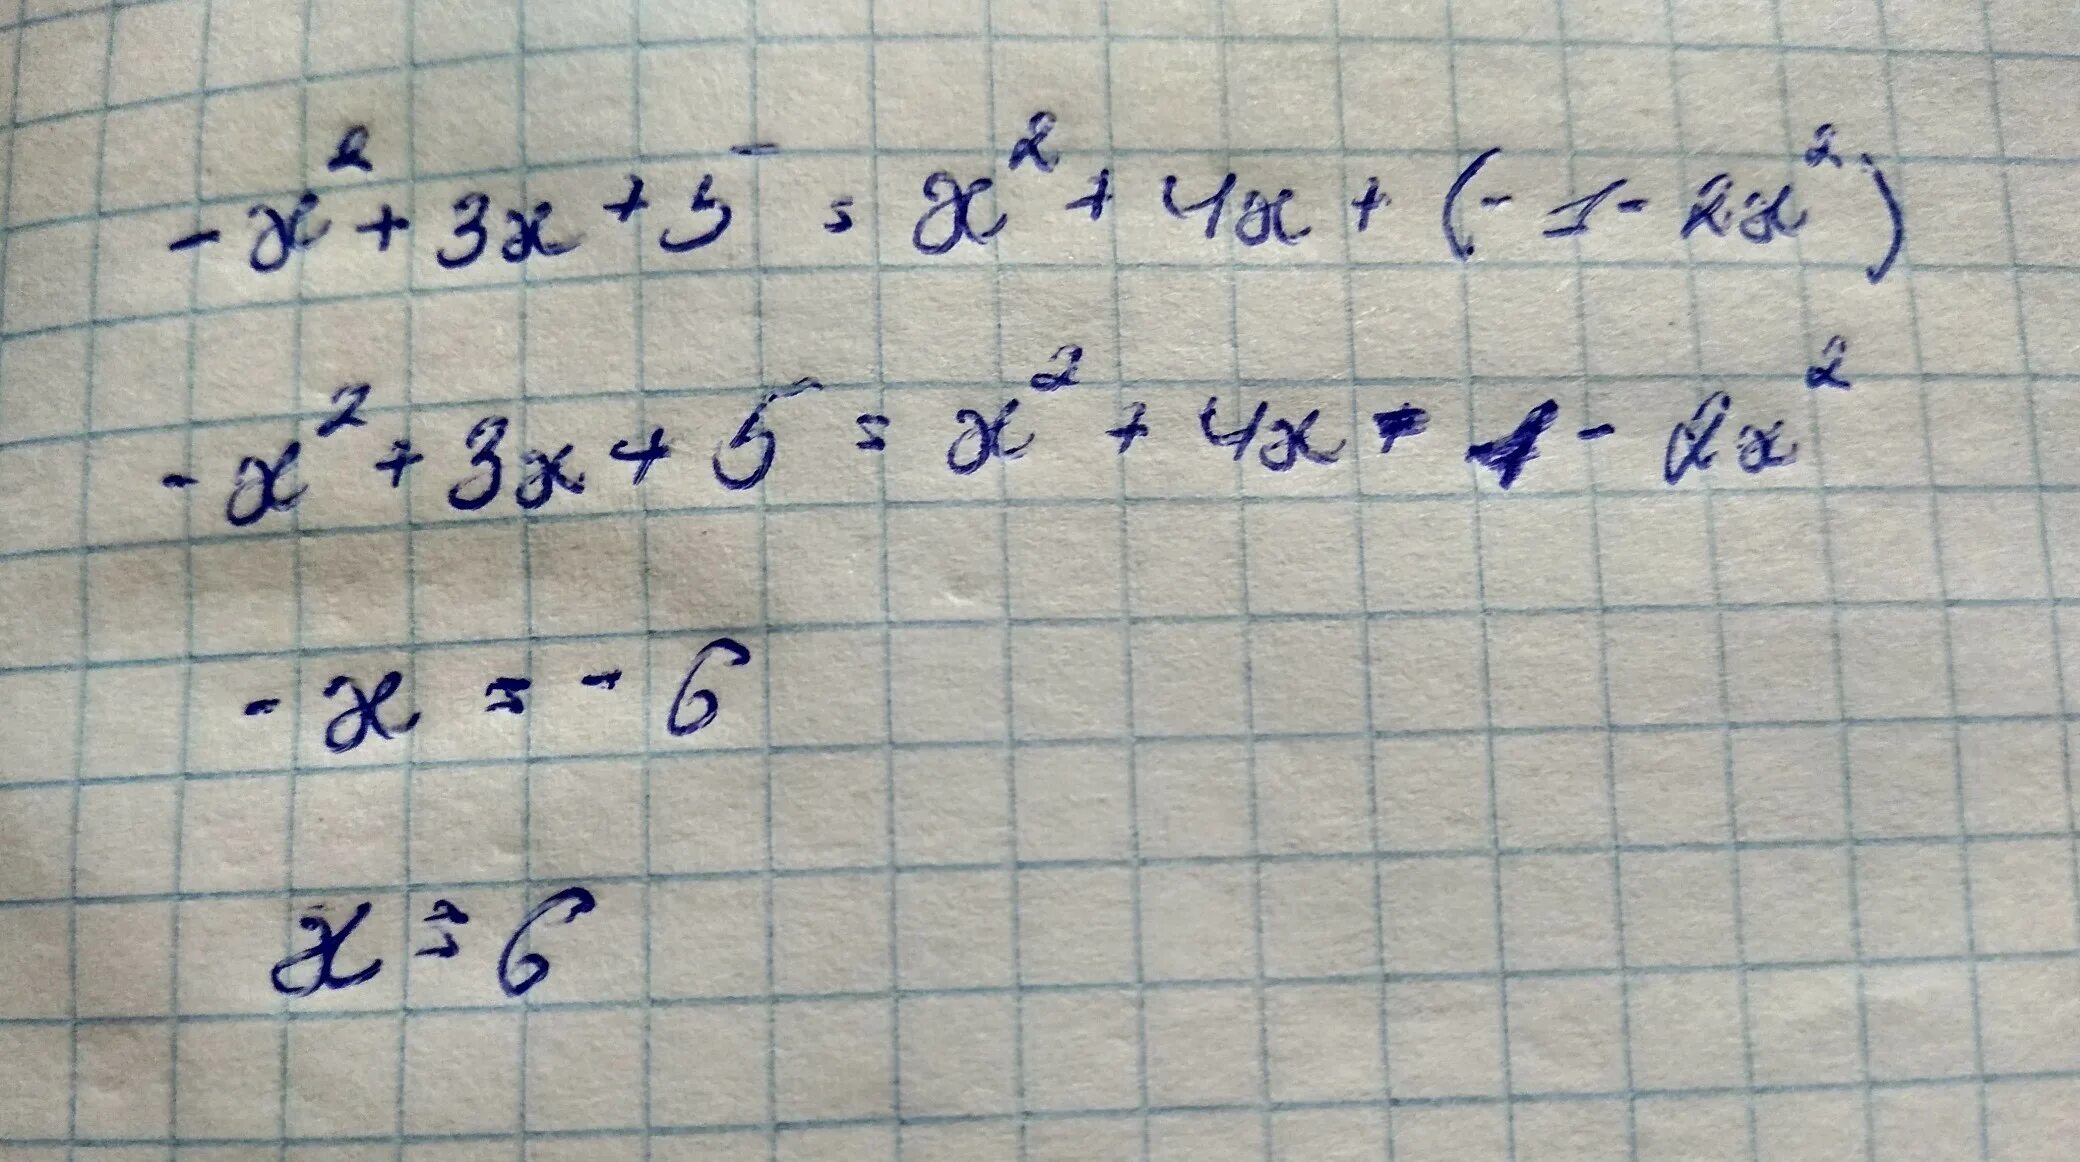 -x² + 3x + 5 = x² + 4x + (-1 - 2x²)
-x² + 3x + 5 = x² + 4x - 1 - 2x²
-x = -6
x = 6